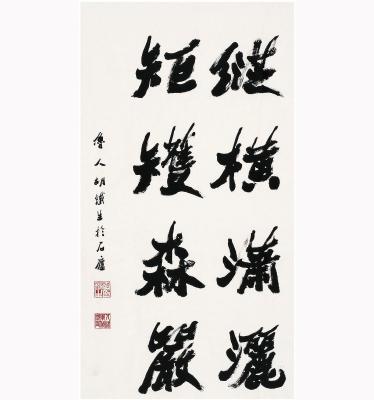 縱橫瀟灑
矩矱森嚴
魯人胡鐵生於石廬